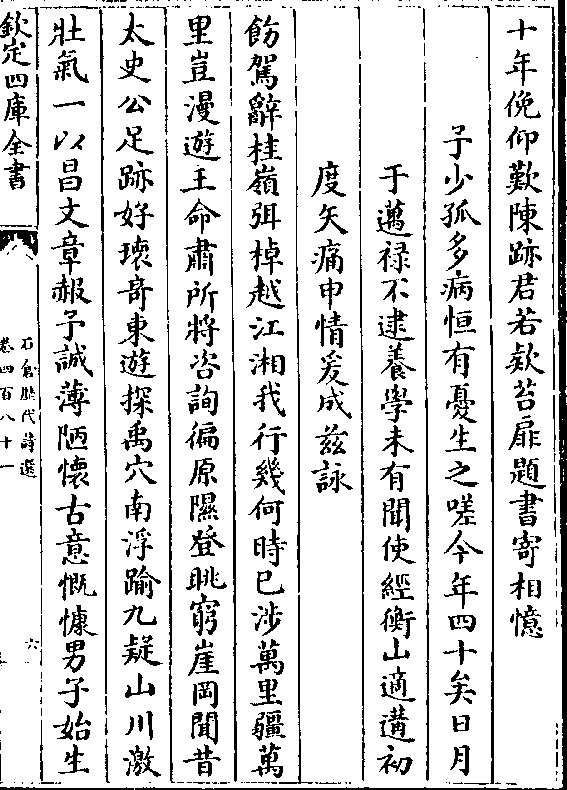 十年俛仰歎陳跡君若欵苔扉題書寄相憶
予少孤多病恒有憂生之嗟今年四十矣日月
于邁禄不逮養學未有聞使經衡山適遘初
度矢痛申情爰成兹詠
飭駕辭桂嶺弭棹越江湘我行幾何時已涉萬里疆萬
里豈漫遊王命肅所將咨詢徧原隰登眺窮崖岡聞昔
太史公足跡好瓌奇東遊探禹穴南浮踰九疑山川激
壯氣一以昌文章赧予誠薄陋懷古意慨慷男子始生
欽定四庫全書
石倉歷代詩選
卷四百八十一
六